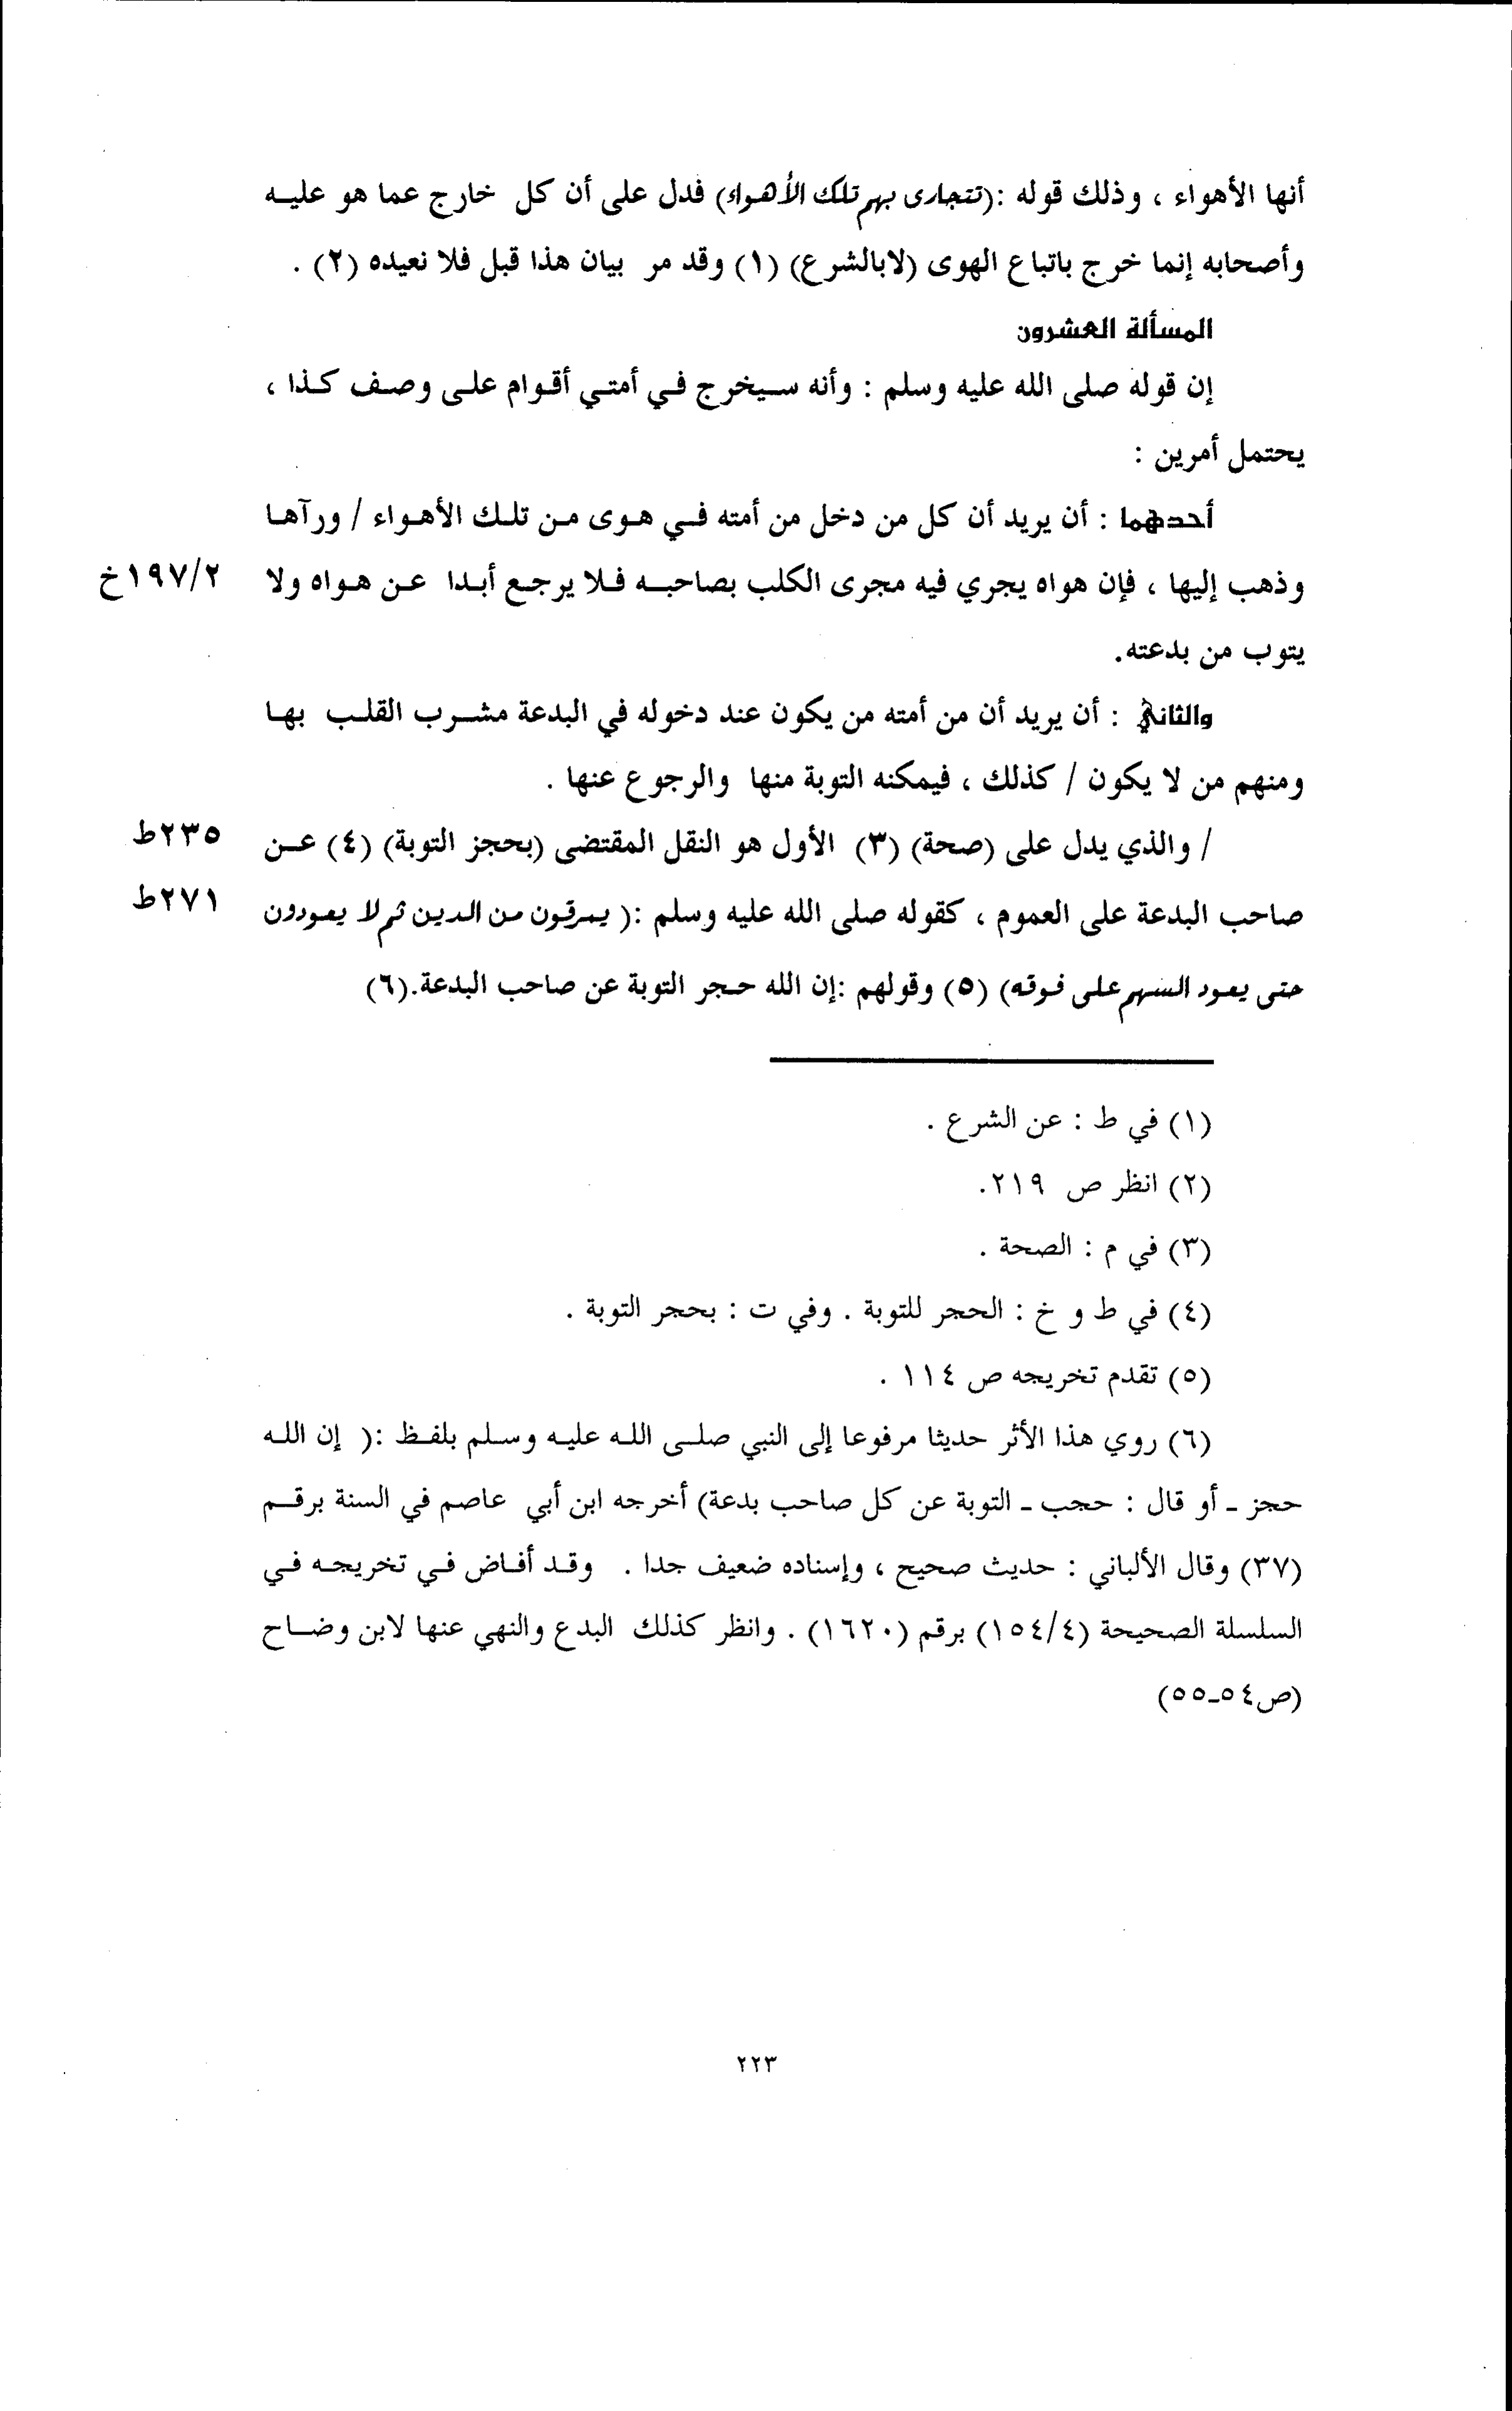 أنها الأهواء ، وذلك قوله :(تتجارى بهم تلك الأهواء) فدل على أن كل خارج عما هو عليه
وأصحابه إنما خرج باتباع الهوى (لابالشرع) (١) وقد مر بيان هذا قبل فلا نعيده (٢) .
المسألة العشرون
إن قوله صلى الله عليه وسلم : وأنه سيخرج في أمتي أقوام على وصف كذا ،
يحتمل أمرين :
أحدهما : أن يريد أن كل من دخل من أمته في هوى من تلك الأهواء / ورآها
وذهب إليها ، فإن هواه يجري فيه مجرى الكلب بصاحبه فلا يرجع أبدا عن هواه ولا ١٩٧/٢خ
يتوب من بدعته.
والثاني : أن يريد أن من أمته من يكون عند دخوله في البدعة مشرب القلب بها
ومنهم من لا يكون / كذلك ، فيمكنه التوبة منها والرجوع عنها .
/ والذي يدل على (صحة) (٣) الأول هو النقل المقتضى (بحجز التوبة) (٤) عن ٢٣٥ط
صاحب البدعة على العموم ، كقوله صلى الله عليه وسلم :( يمرقون من الدين ثم لا يعودون ٢٧١ط
حتى يعود السهم على فوقه) (٥) وقولهم :إن الله حجر التوبة عن صاحب البدعة.(٦)
(١) في ط : عن الشرع .
(٢) انظر ص ٢١٩.
(٣) في م : الصحة .
(٤) في ط و خ : الحجر للتوبة . وفي ت : بحجر التوبة .
(٥) تقدم تخريجه ص ١١٤ .
(٦) روي هذا الأثر حديثا مرفوعا إلى النبي صلى الله عليه وسلم بلفظ :( إن الله
حجز ـ أو قال : حجب ـ التوبة عن كل صاحب بدعة) أخرجه ابن أبي عاصم في السنة برقم
(٣٧) وقال الألباني : حديث صحيح ، وإسناده ضعيف جدا . وقد أفاض في تخريجه في
السلسلة الصحيحة (١٥٤/٤) برقم (١٦٢٠) . وانظر كذلك البدع والنهي عنها لابن وضاح
(ص٥٤ـ٥٥)
٢٢٣